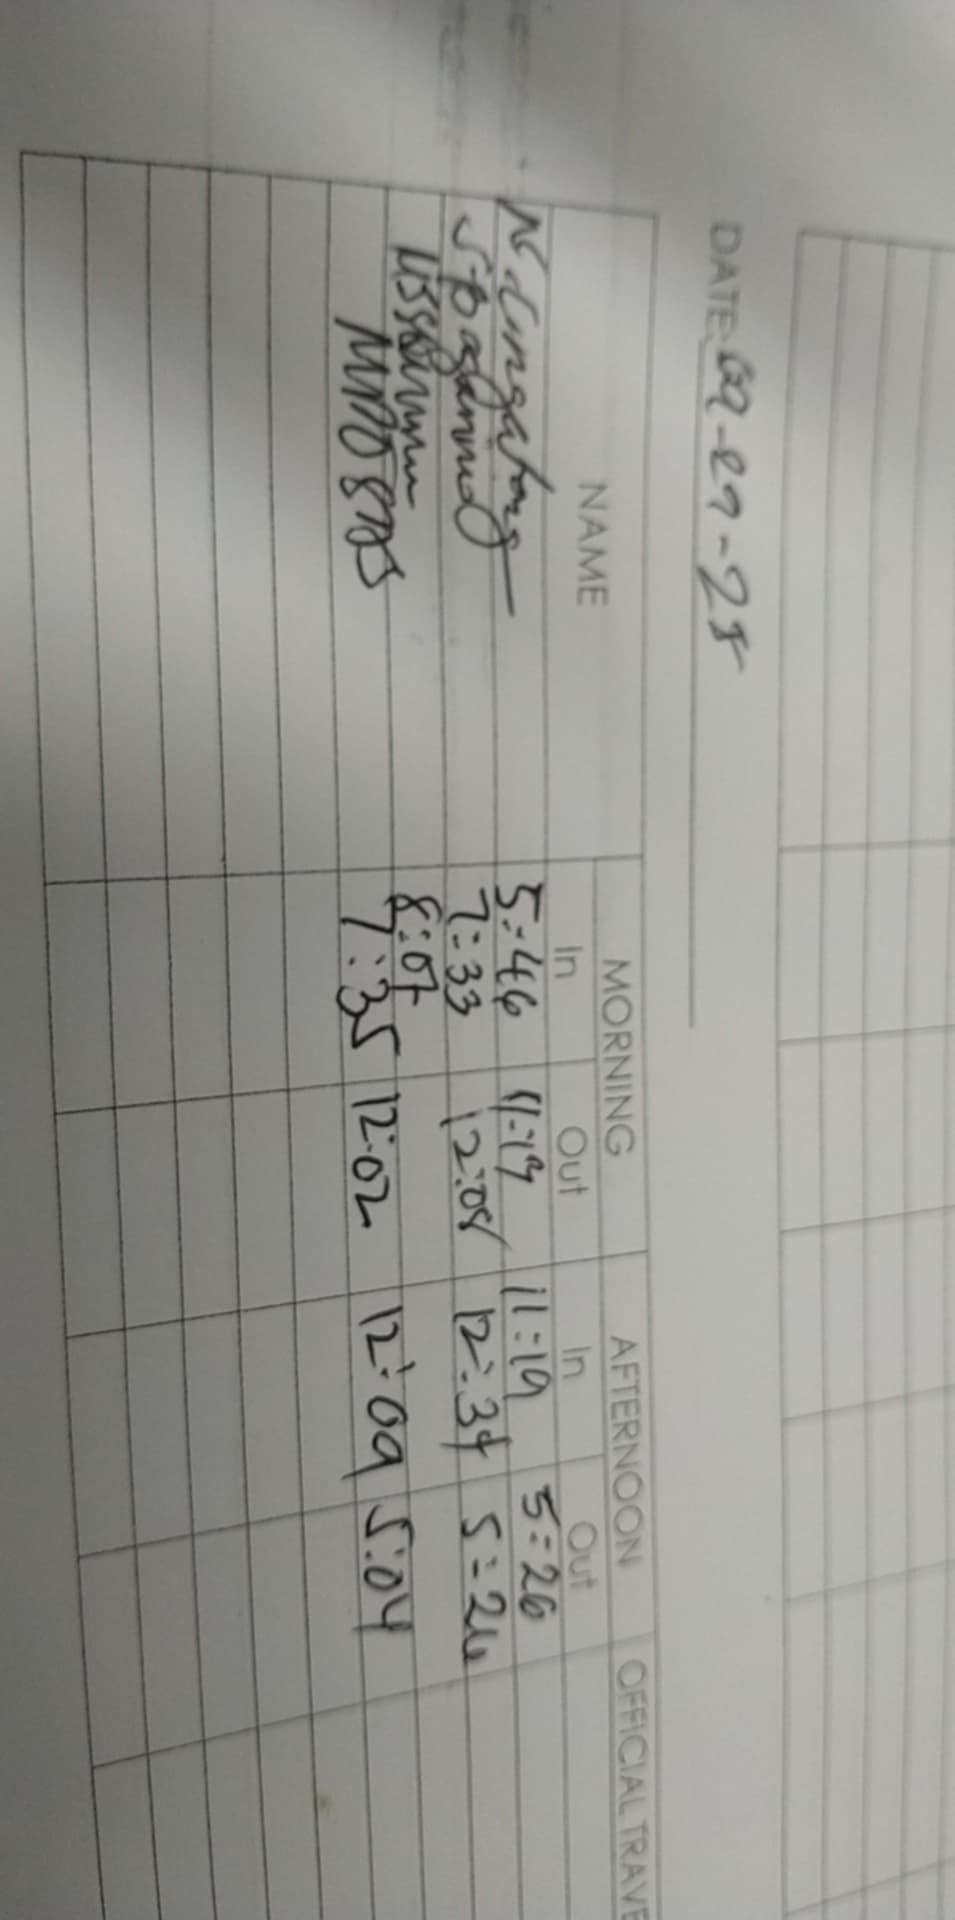 DATE: 09-29-25
NAME MORNING AFTERNOON OFFICIAL TRAVE
In Out In Out
5:46 11:19 11:19 5:26
7:33 12:08 12:34 5:26
8:07
7:35 12:02 12:09 5:04